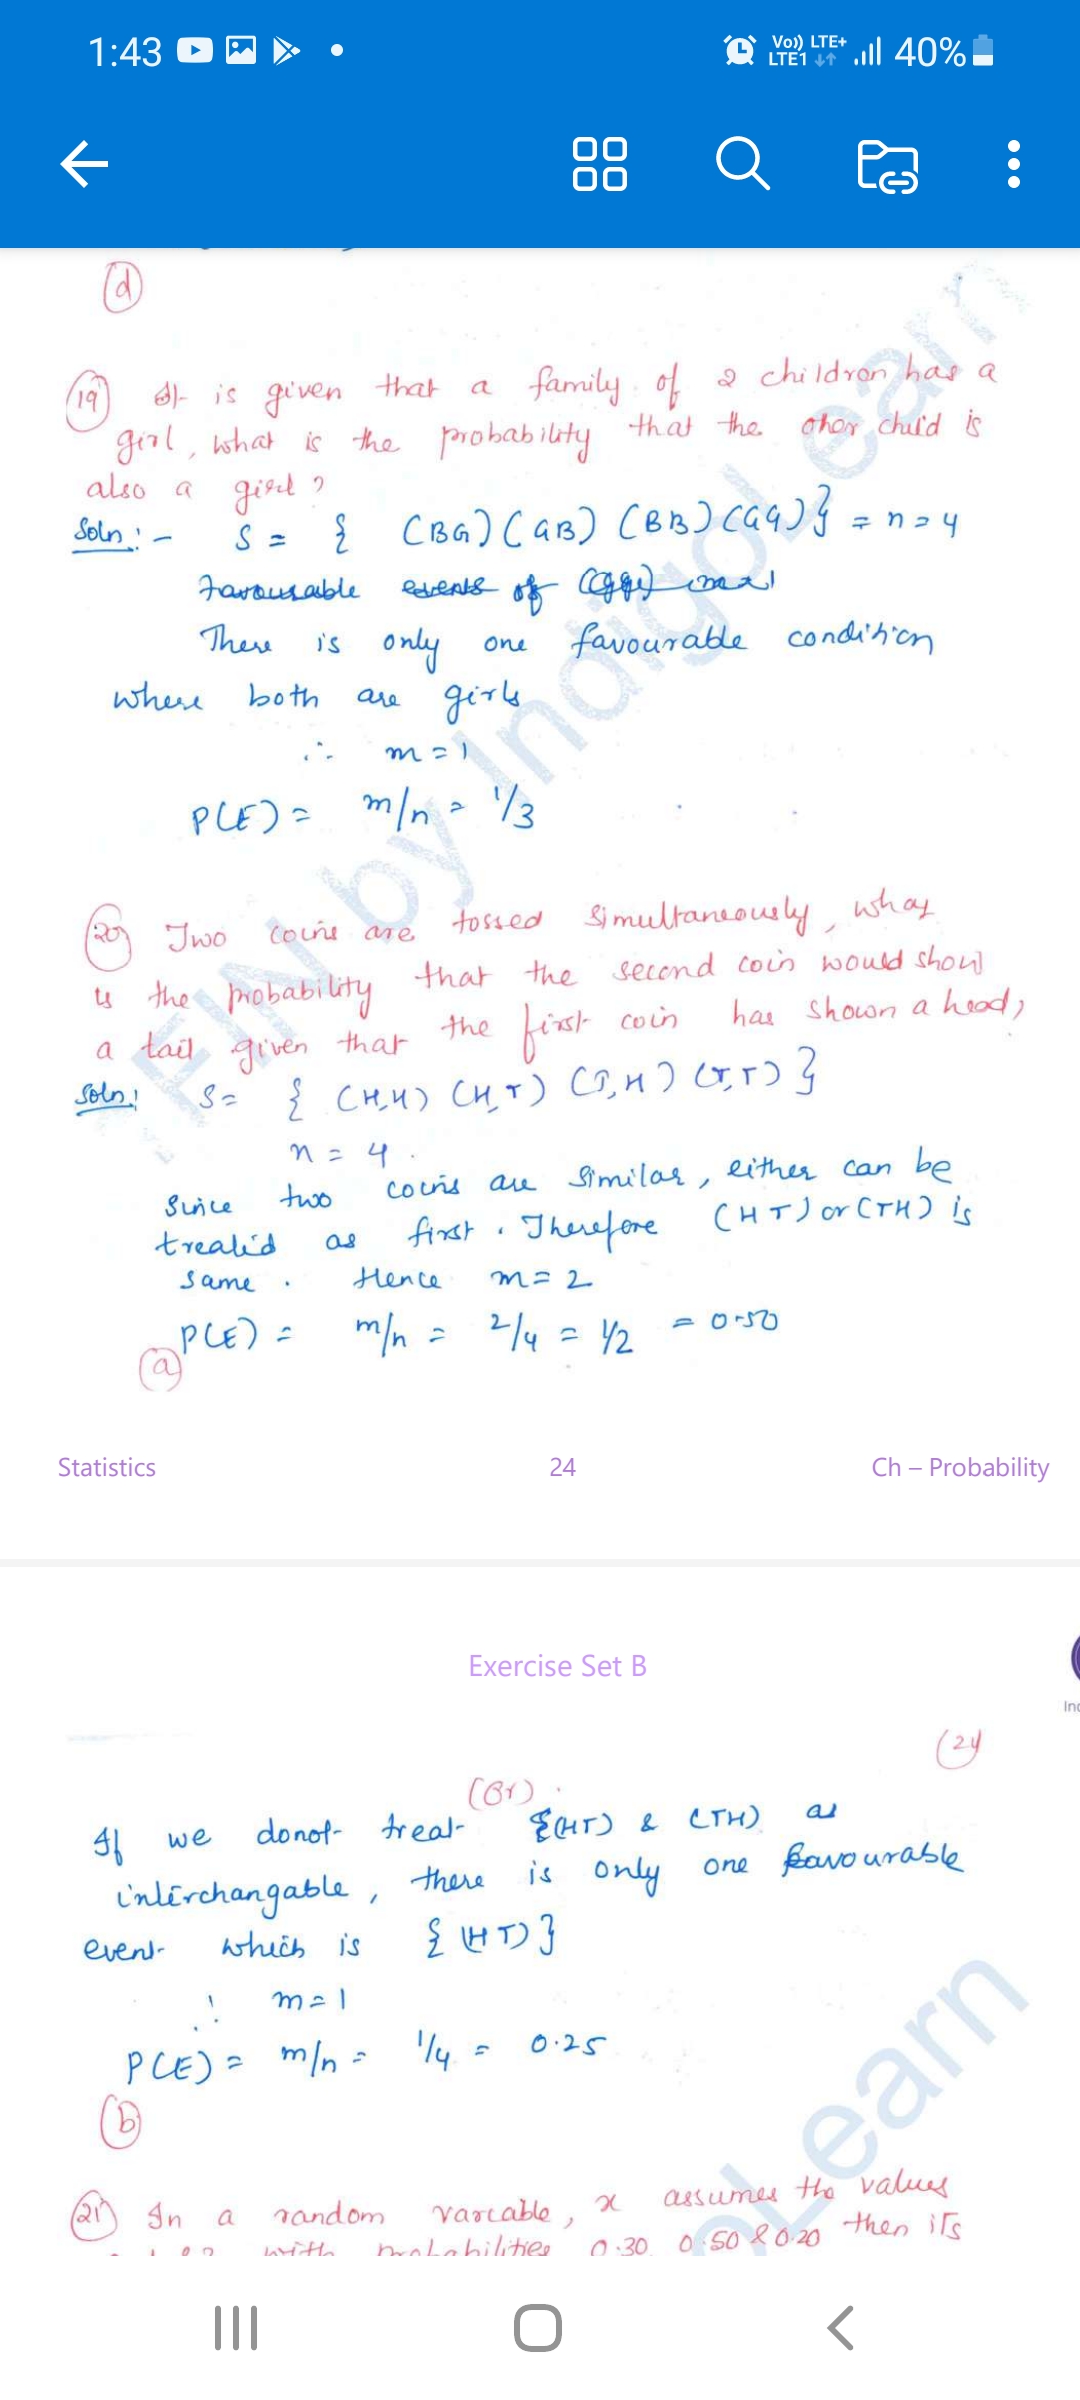 1:43
Vo)) LTE+
LTE1
40%
(d)
(19) It is given that a family of 2 children has a
girl, what is the probability that the other child is
also a girl?
Soln:- S = { (BG) (GB) (BB) (GG) } = n = 4
Favourable events of
There is only one favourable condition
where both are girls
∴ m = 1
P(E) = m/n = 1/3
(20) Two coins are tossed simultaneously, what
is the probability that the second coin would show
a tail given that the first coin has shown a head?
Soln: S = { (H,H) (H,T) (T,H) (T,T) }
n = 4.
Since two coins are similar, either can be
treated as first. Therefore (HT) or (TH) is
same. Hence m = 2
P(E) = m/n = 2/4 = 1/2 = 0.50
(a)
FIN by IndigoLearn
Statistics 24 Ch – Probability
Exercise Set B
(24
(Or).
If we donot treat {(HT) & (TH) as
interchangable, there is only one favourable
event which is {(HT)}
∴ m = 1
P(E) = m/n = 1/4 = 0.25
(b)
(21) In a random variable, x assumes the values
with probabilities 0.30, 0.50 & 0.20 then its